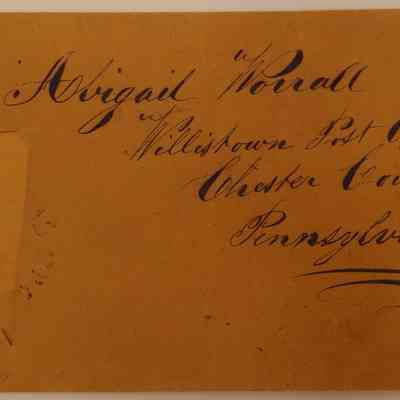 Abigail Worrall
Willistown Post
Chester Cou
Pennsylva